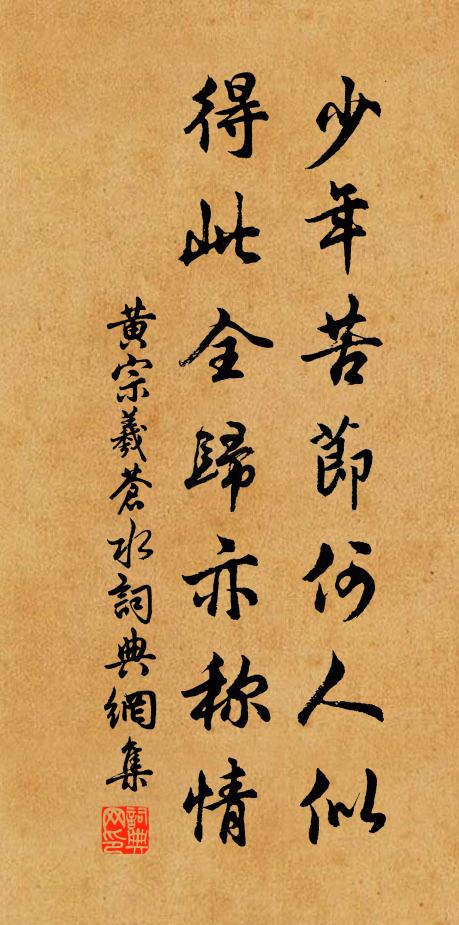 少年苦節何人似
得此全歸亦称情
黄宗羲蒼水詞典網集
詞典网印